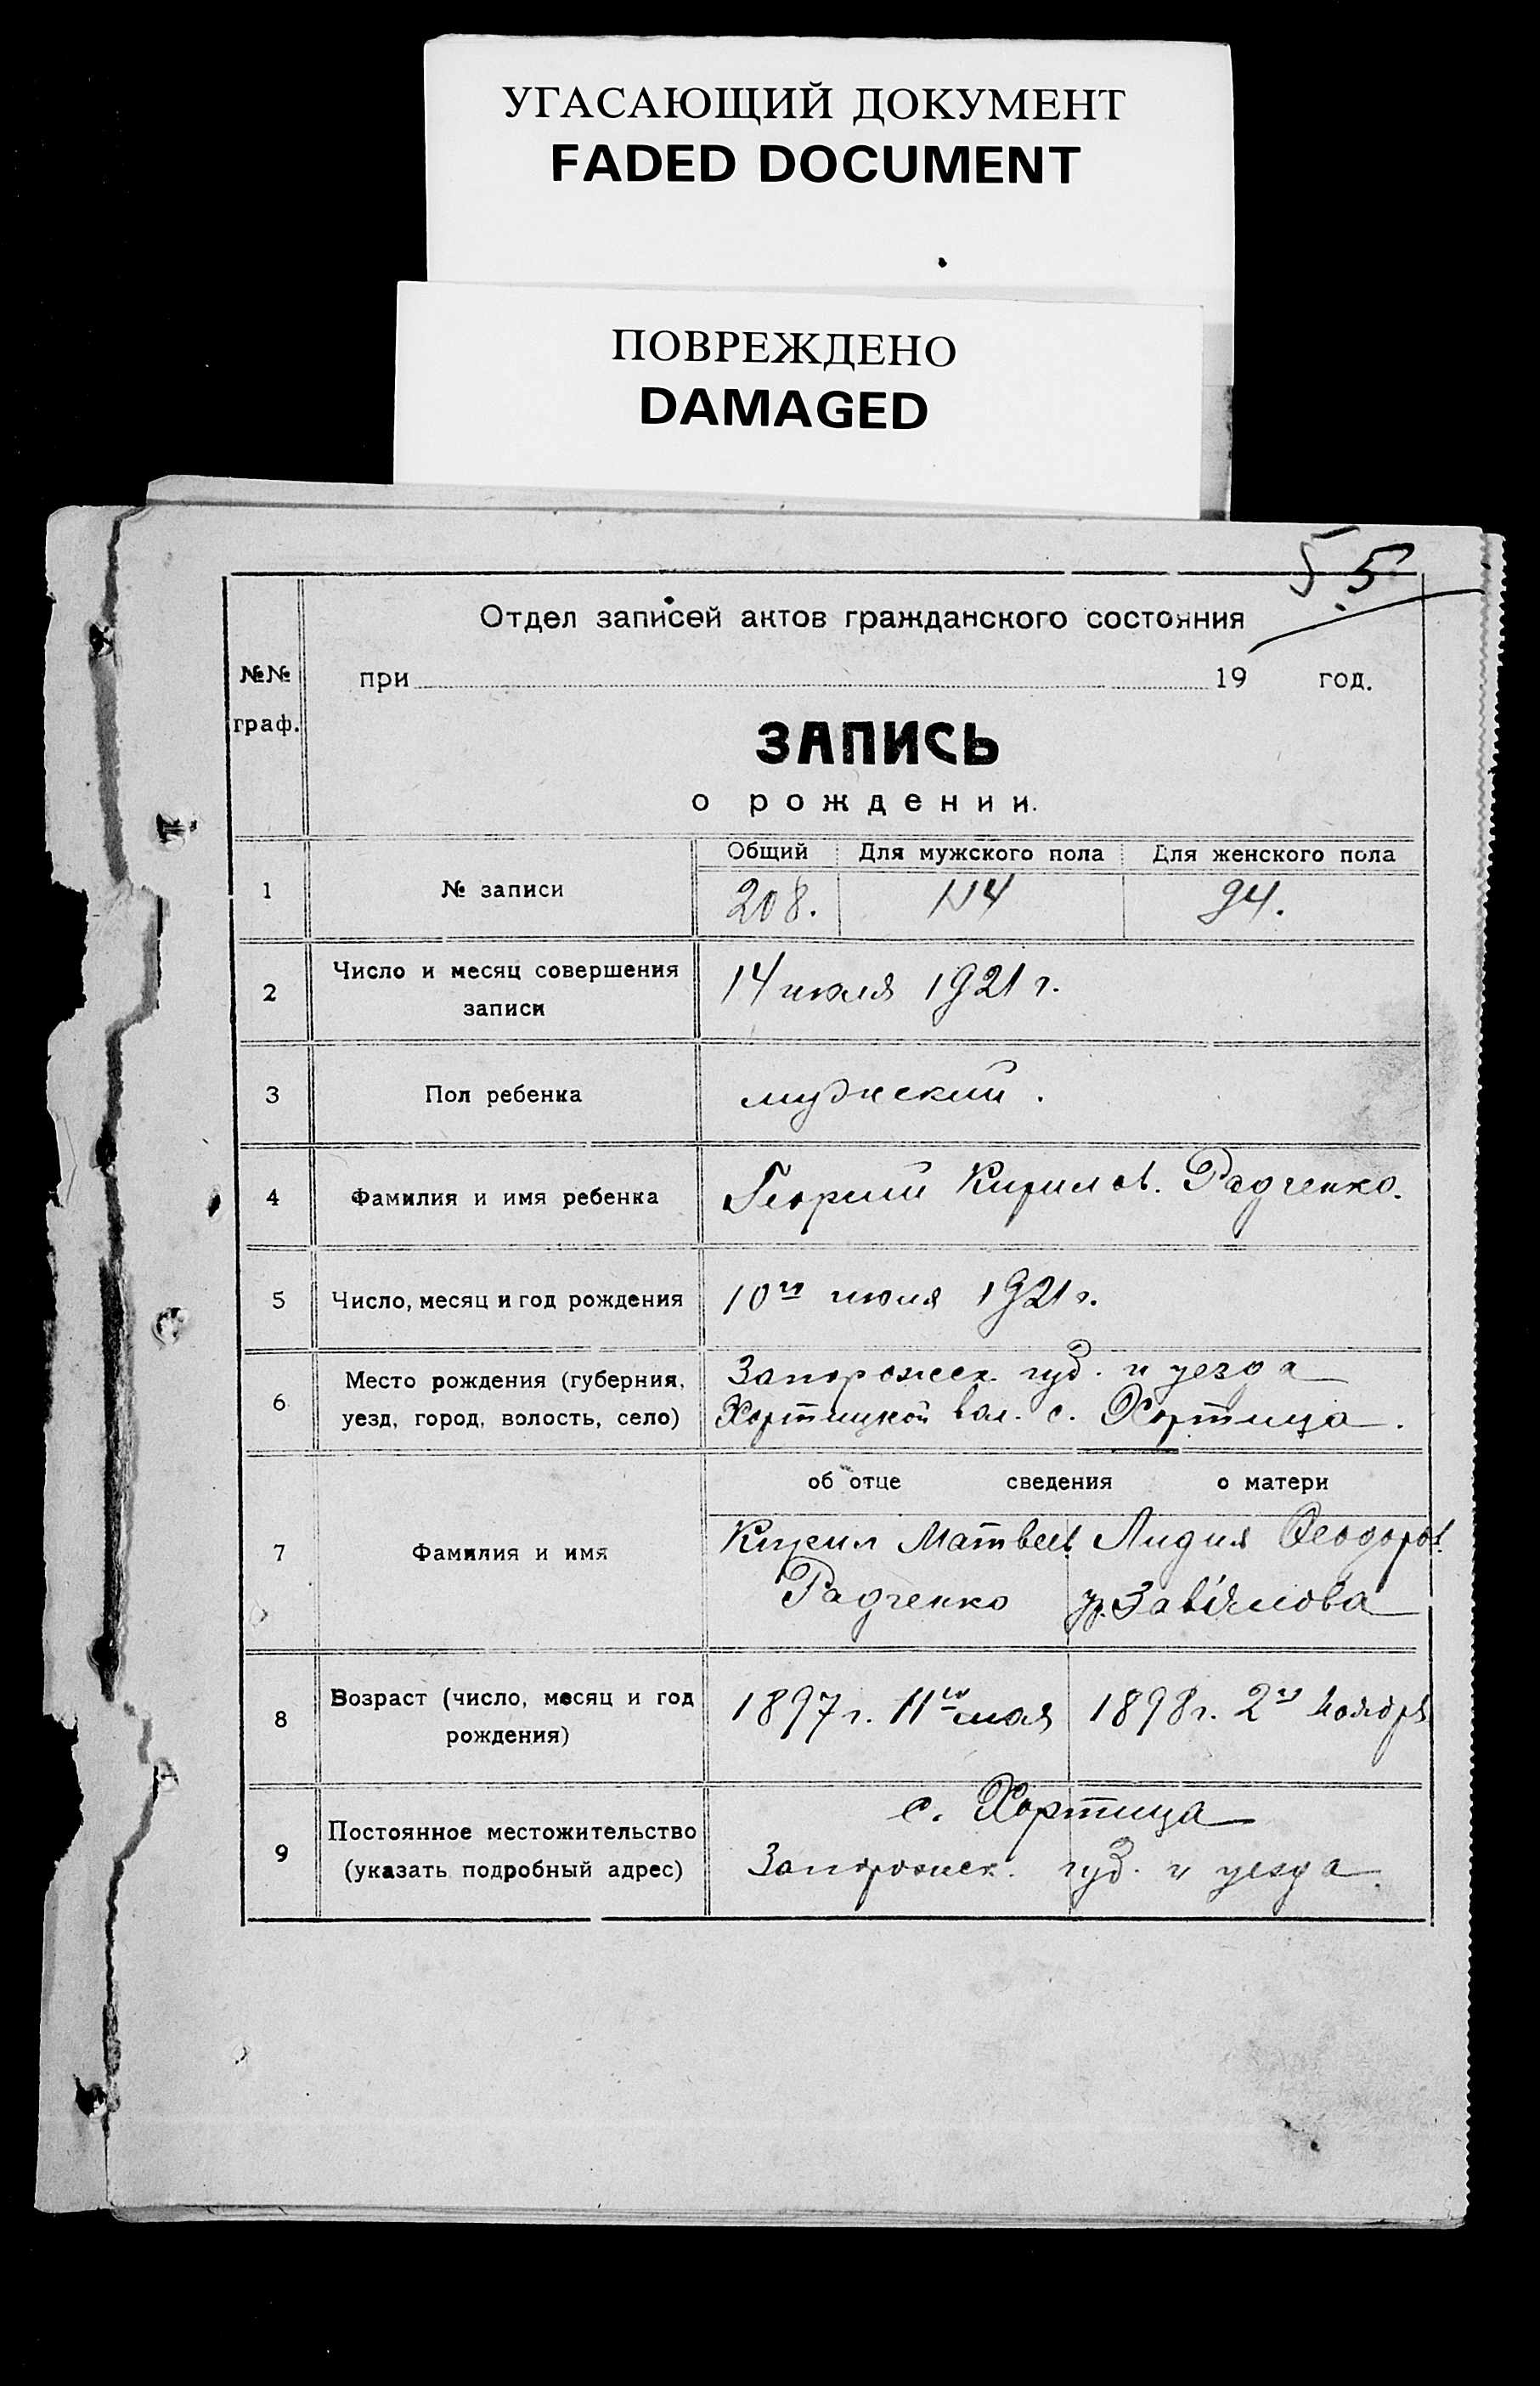 УГАСАЮЩИЙ ДОКУМЕНТ
FADED DOCUMENT
ПОВРЕЖДЕНО
DAMAGED
55
Отдел записей актов гражданского состояния
№№ граф.
при 19 год.
ЗАПИСЬ
о рождении.
Общий Для мужского пола Для женского пола
1 № записи 208. 114 94.
2 Число и месяц совершения
записи
14 июля 1921 г.
3 Пол ребенка мужский.
4 Фамилия и имя ребенка Георгий Кирилов. Радченко.
5 Число, месяц и год рождения 10го июля 1921 г.
6 Место рождения (губерния,
уезд, город, волость, село)
Запорожск. губ. и уезда
Хортицкой вол. с. Хортица.
об отце сведения о матери
7 Фамилия и имя
Кирил Матвеев. Радченко
Лидия Феодоров.
ур. Завiялова
8 Возраст (число, месяц и год
рождения)
1897 г. 11го мая
1898 г. 2го ноября
9 Постоянное местожительство
(указать подробный адрес)
с. Хортица
Запорожск. губ. и уезда.